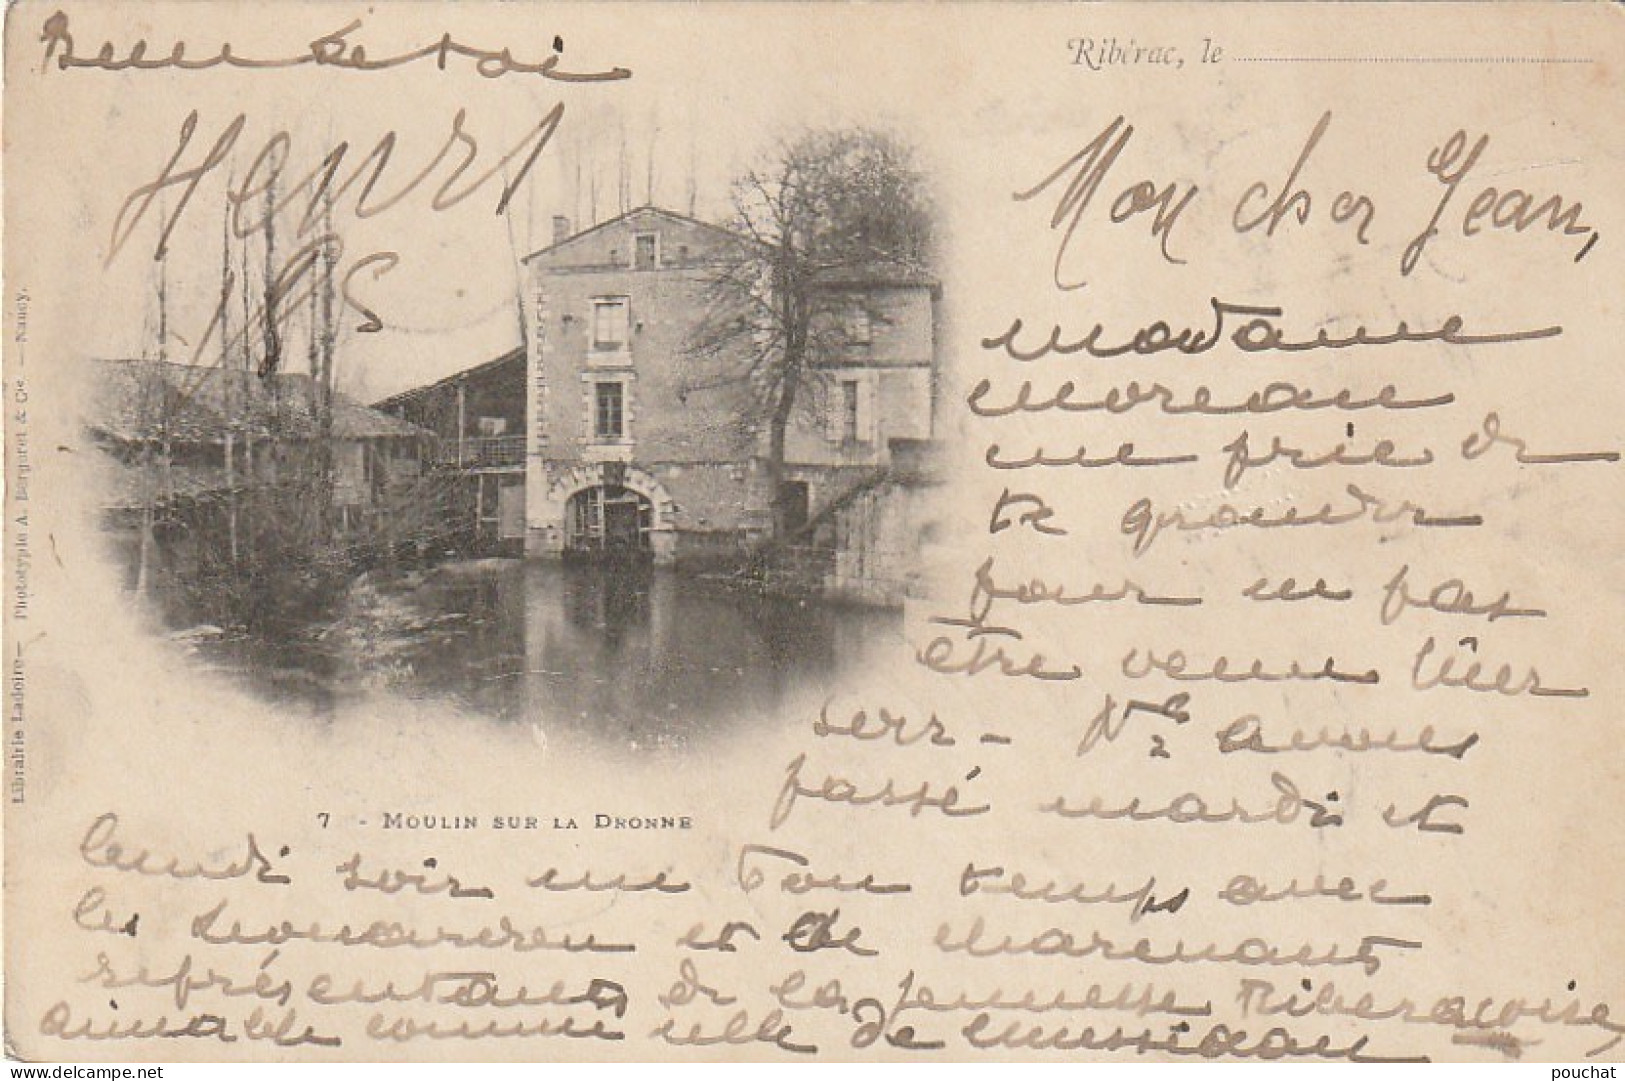 Bien à toi
Henri
Ribérac, le
Mon cher Jean,
Madame
Moreau
me prie de
te gronder
pour ne pas
être venu hier
soir - Ns avons
passé mardi et
7 - MOULIN SUR LA DRONNE
lundi soir un bon temps avec
les et de charmants
représentants de la jeunesse Riberacoise,
aimable comme celle de Mussidan
Librairie Ladoire — Phototypie A. Bergeret & Cie. — Nancy.
pouchat